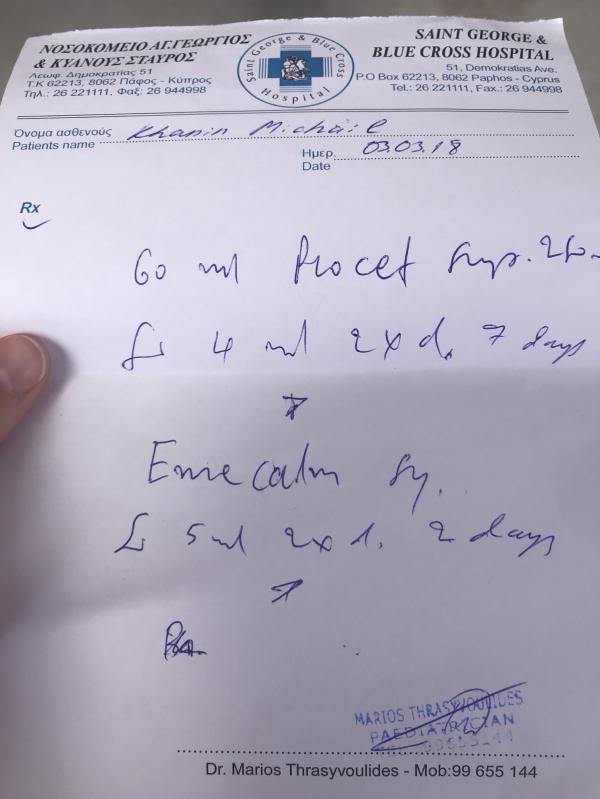 ΝΟΣΟΚΟΜΕΙΟ ΑΓ.ΓΕΩΡΓΙΟΣ
& ΚΥΑΝΟΥΣ ΣΤΑΥΡΟΣ
Λεωφ. Δημοκρατίας 51
Τ.Κ 62213, 8062 Πάφος - Κύπρος
Τηλ.: 26 221111, Φαξ: 26 944998
Saint George & Blue Cross
Hospital
SAINT GEORGE &
BLUE CROSS HOSPITAL
51, Demokratias Ave.
P.O Box 62213, 8062 Paphos - Cyprus
Tel.: 26 221111, Fax.: 26 944998
Όνομα ασθενούς
Patients name Khanin Michail
Ημερ. 03.03.18
Date
Rx
60 ml Procef syr.
4 ml 2x d. 7 days
Emecalm sy.
5 ml 2x d. 2 days
MARIOS THRASYVOULIDES
PAEDIATRICIAN
99655144
Dr. Marios Thrasyvoulides - Mob:99 655 144